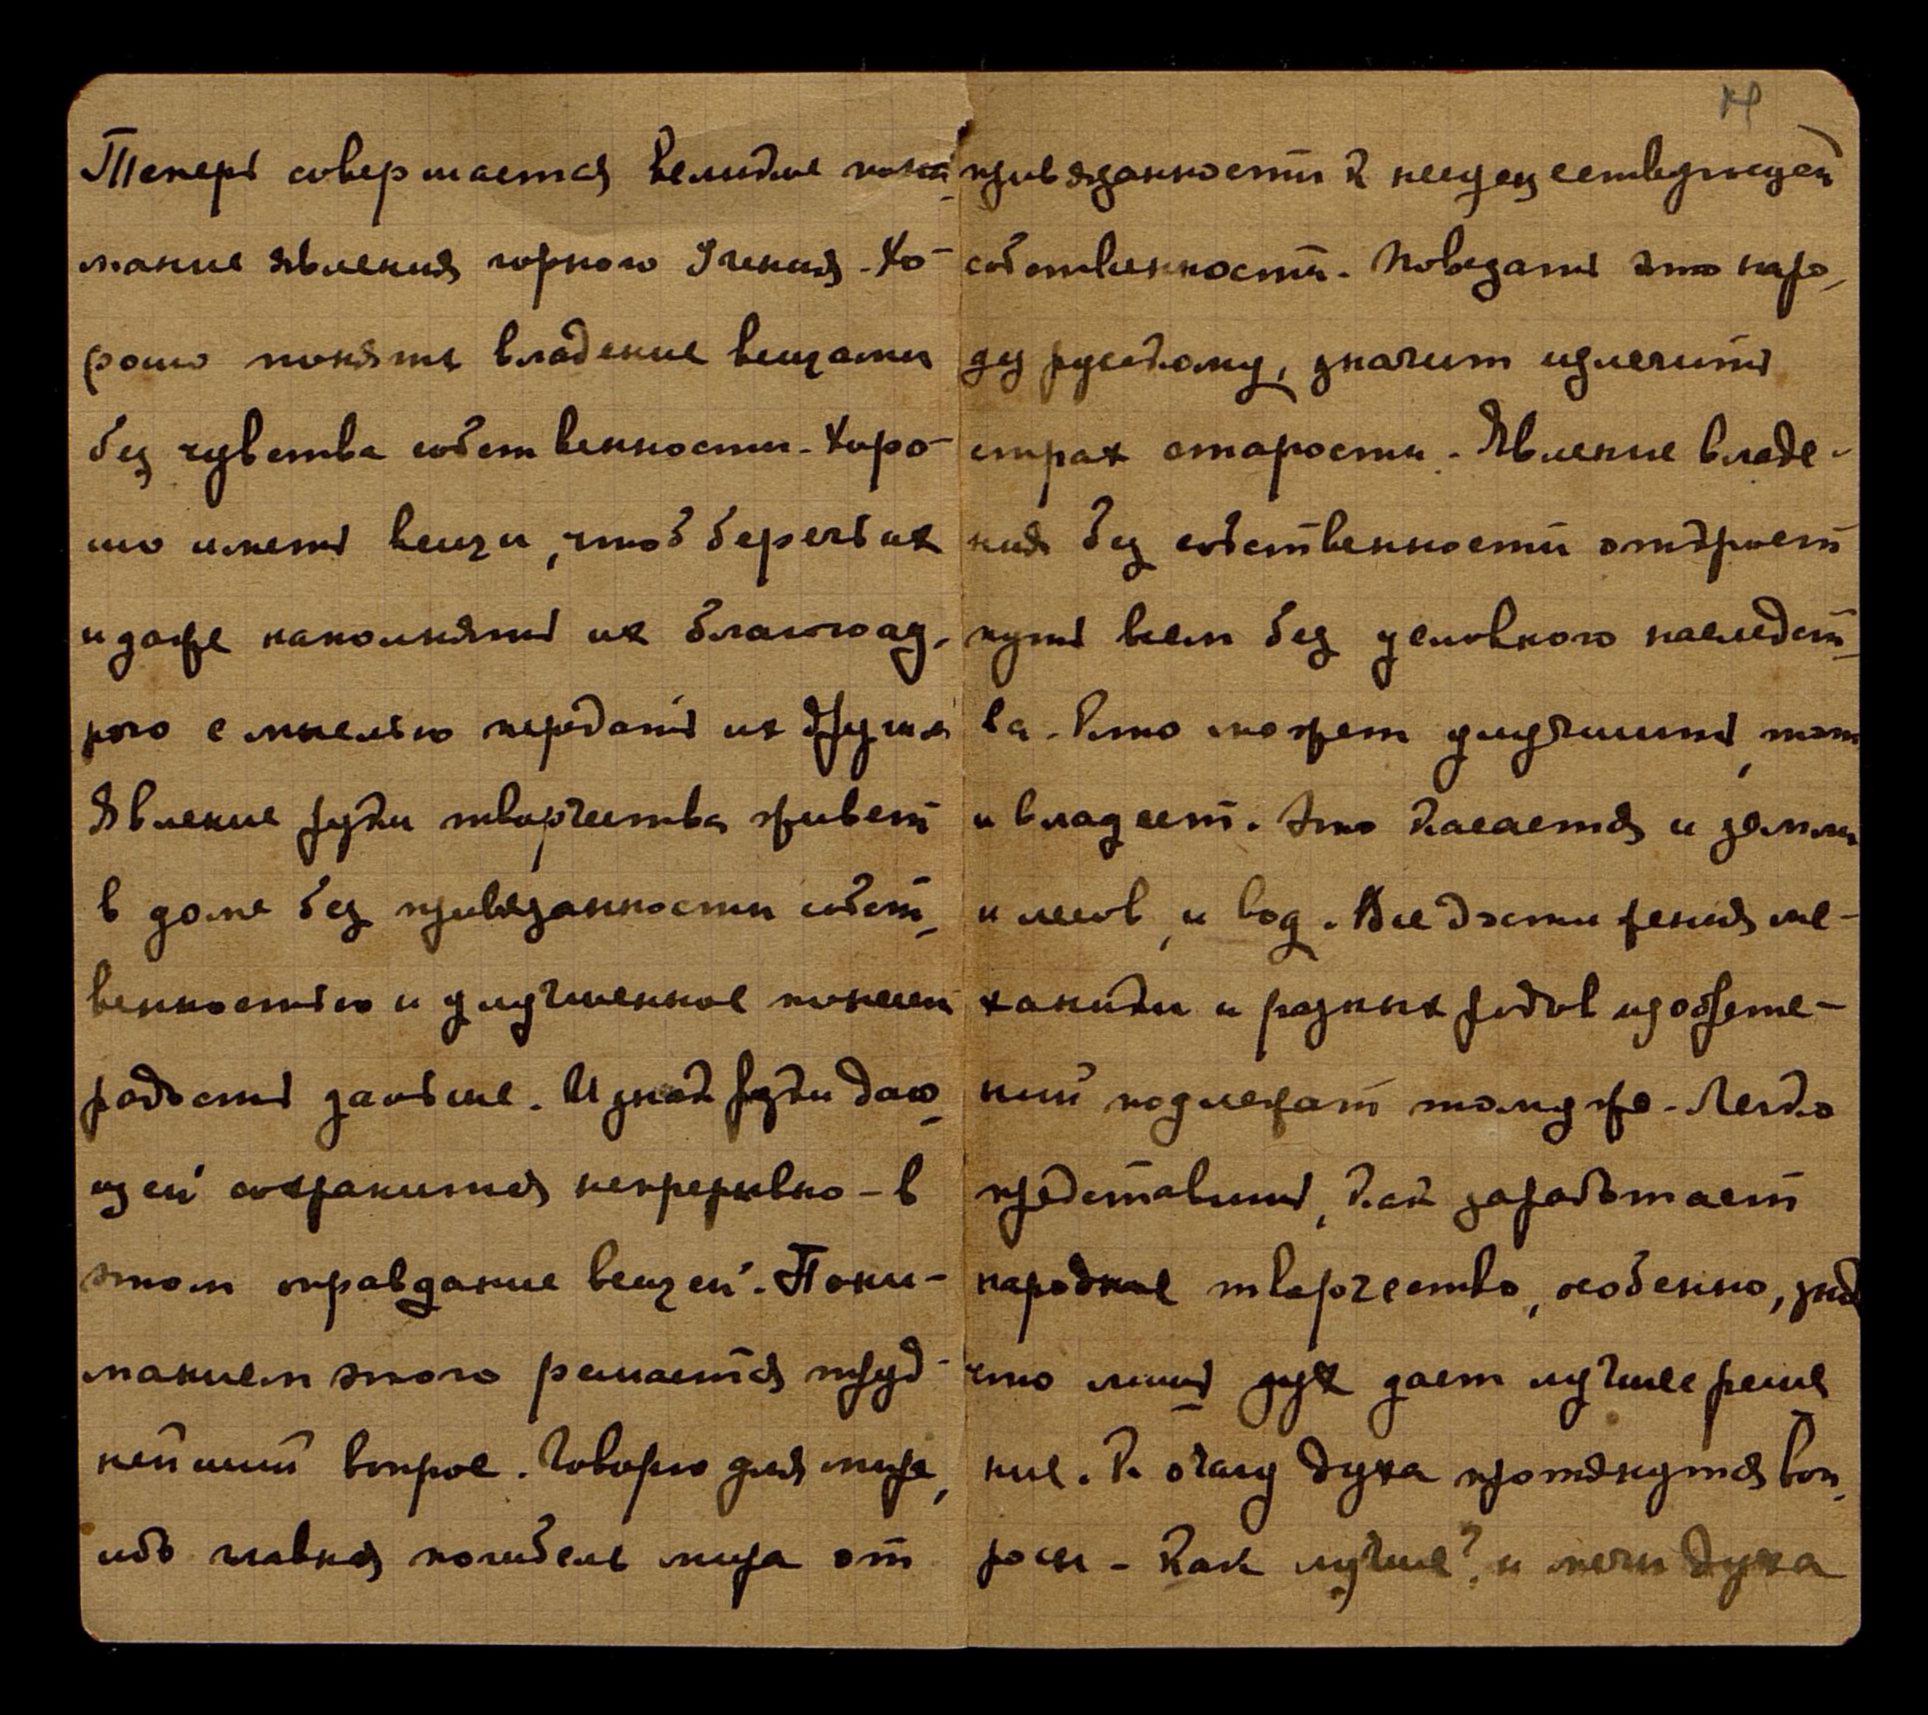 Теперь совершается великое пони-
мание явления горного Учения. Хо-
рошо понять владение вещами
без чувства собственности. Хоро-
шо иметь вещи, чтоб беречь их
и даже наполнять их благой ау-
рою с мыслью передать их другим
Явление руки творчества живет
в доме без привязанности собст-
венностью и улучшенное понесет
радость дальше. И знак руки даю-
щей сохранится непрерывно – в
этом оправдание вещей. Пони-
манием этого решается труд-
нейший вопрос. Говорю для мира,
ибо главная погибель мира от
привязанности к несуществующей
собственности. Поведать это наро-
ду русскому, значит излечить
страх старости. Явление владе-
ния без собственности откроет
путь всем без условного наследст-
ва. Кто может улучшить, тот
и владеет. Это касается и земли
и лесов, и вод. Все достижения ме-
ханики и разных родов изобрете-
ний подлежат тому же. Легко
представить, как заработает
народное творчество, особенно, зная
что лишь дух дает лучшее реше
ние. К очагу духа протянутся воп-
росы – Как лучше? и мечи духа